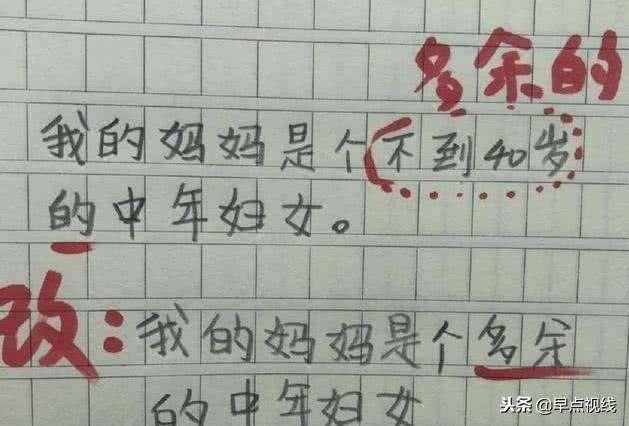 多余的
我的妈妈是个(不到40岁
的中年妇女。
改:我的妈妈是个多余
的中年妇女
头条@早点视线